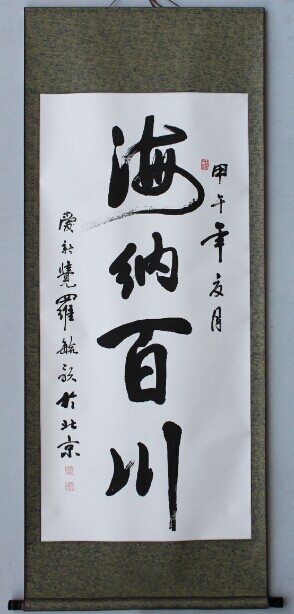 甲午年夏月
海納百川
愛新覺羅毓於北京